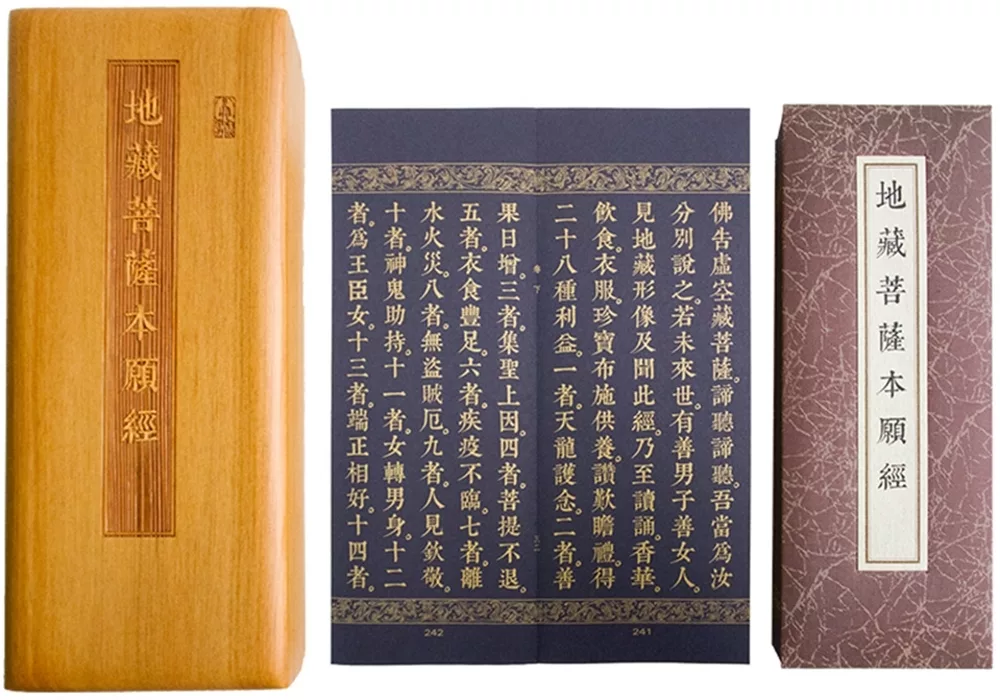 地藏菩薩本願經
佛告虛空藏菩薩。諦聽諦聽。吾當爲汝
分別說之。若未來世有善男子善女人。
見地藏形像及聞此經。乃至讀誦香華
飲食。衣服。珍寶布施供養。讚歎瞻禮。得
二十八種利益。一者。天龍護念。二者。善
卷下
果日增。三者。集聖上因。四者。菩提不退。
五者。衣食豐足。六者。疾疫不臨。七者。離
水火災。八者。無盜賊厄。九者。人見欽敬。
十者。神鬼助持。十一者。女轉男身。十二
者。爲王臣女。十三者。端正相好。十四者。
242
241
地藏菩薩本願經